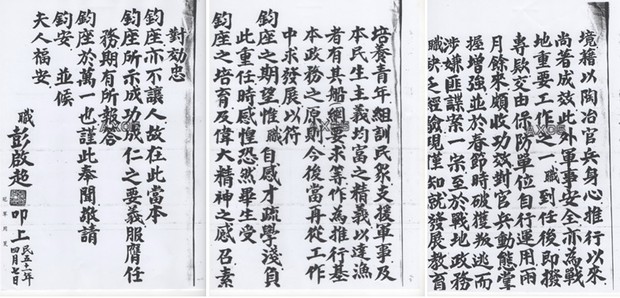 境藉以陶冶官兵身心推行以來
尚著成效此外軍事安全亦為戰
地重要工作之一職到任後即撥
專款交由保防單位自行運用兩
月餘來頗收功效對官兵動態掌
握增強並於春節時破獲叛逃而
涉嫌匪諜案一宗至於戰地政務
職缺乏經驗現僅知就發展教育
培養青年組訓民眾支援軍事及
本民生主義均富之精義以達漁
者有其船網要求等作為推行基
本政務之原則今後當再從工作
中求發展以符
鈞座之期望惟職自感才疏學淺負
此重任時感惶恐然畢生受
鈞座之培育及偉大精神之感召素
對効忠
鈞座亦不讓人故在此當本
鈞座所示成功成仁之要義服膺任
務期有所報答
鈞座於萬一也謹此奉聞敬請
鈞安 並候
夫人福安
職 彭啟超 叩上
四月七日